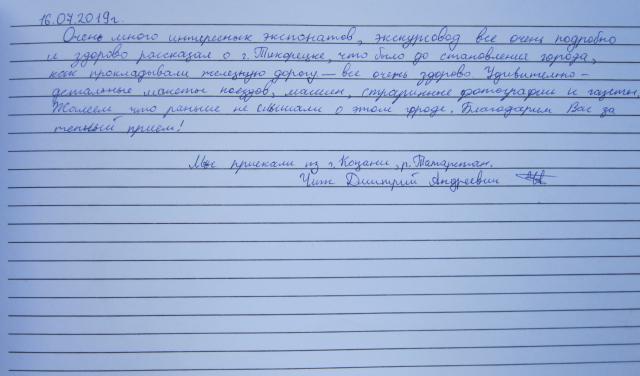 16.07.2019г.
Очень много интересных экспонатов, экскурсовод все очень подробно
и здорово рассказал о г. Тихорецке, что было до становления города,
как прокладывали железную дорогу — все очень здорово. Удивительно-
детальные макеты поездов, машин, старинные фотографии и газеты.
Жалеем что раньше не слышали о этом городе. Благодарим Вас за
теплый прием!
Мы приехали из г. Казани, р. Татарстан.
Чит Дмитрий Андреевич